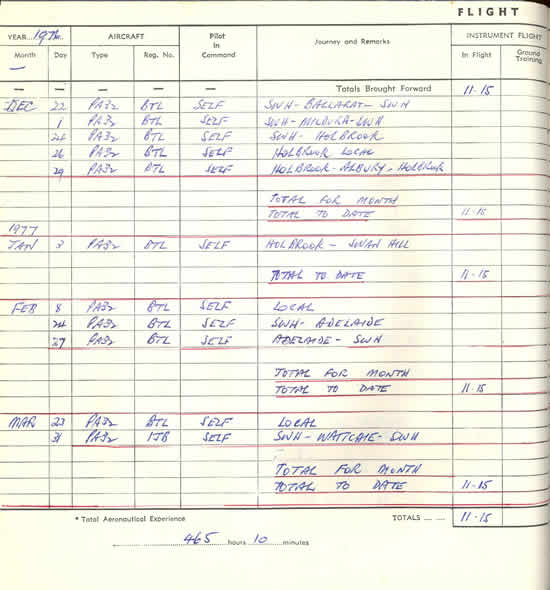 FLIGHT
YEAR 1976 AIRCRAFT Pilot In Command Journey and Remarks INSTRUMENT FLIGHT
Month Day Type Reg. No. In Flight Ground Training
— — — — — Totals Brought Forward 11-15
DEC 22 PA32 BTL SELF SWH - BALLARAT - SWH
1 PA32 BTL SELF SWH - MILDURA - SWH
24 PA32 BTL SELF SWH - HOLBROOK
26 PA32 BTL SELF HOLBROOK LOCAL
29 PA32 BTL SELF HOLBROOK - ALBURY - HOLBROOK
TOTAL FOR MONTH
TOTAL TO DATE 11-15
1977
JAN 3 PA32 BTL SELF HOLBROOK - SWAN HILL
TOTAL TO DATE 11-15
FEB 8 PA32 BTL SELF LOCAL
24 PA32 BTL SELF SWH - ADELAIDE
27 PA32 BTL SELF ADELAIDE - SWH
TOTAL FOR MONTH
TOTAL TO DATE 11-15
MAR 23 PA32 BTL SELF LOCAL
31 PA32 IJB SELF SWH - WATTCHIE - SWH
TOTAL FOR MONTH
TOTAL TO DATE 11-15
* Total Aeronautical Experience TOTALS 11-15
465 hours 10 minutes